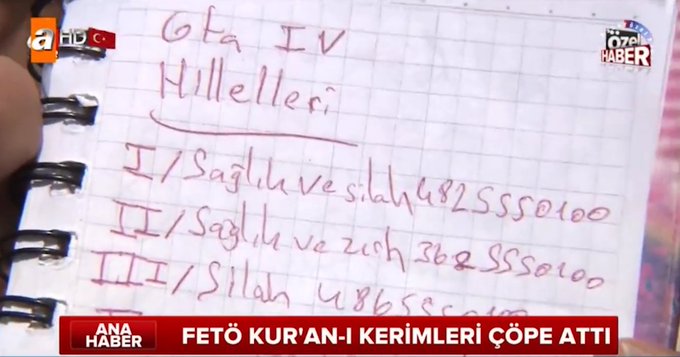 a HD
Özel
HABER
Gta IV
Hillelleri
I/Sağlık ve silah 482 555 0100
II/Sağlık ve zırh 362 555 0100
III/Silah 486 555 0100
ANA
HABER
FETÖ KUR'AN-I KERİMLERİ ÇÖPE ATTI